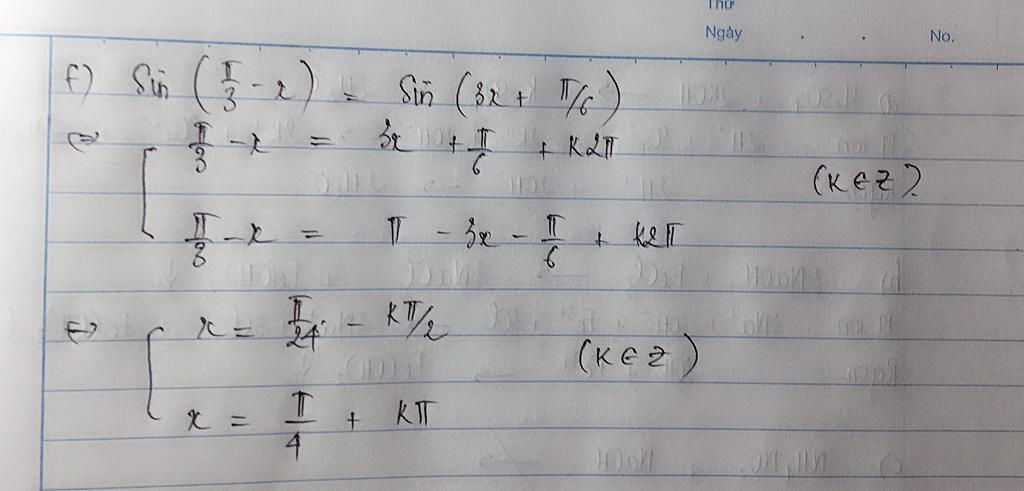 Thứ
Ngày . . No.
f) Sin (π/3 - x) = Sin (3x + π/6)
⇔ [ π/3 - x = 3x + π/6 + k2π
(k ∈ Z).
π/3 - x = π - 3x - π/6 + k2π
⇔ [ x = π/24 - kπ/2
(k ∈ Z)
x = π/4 + kπ